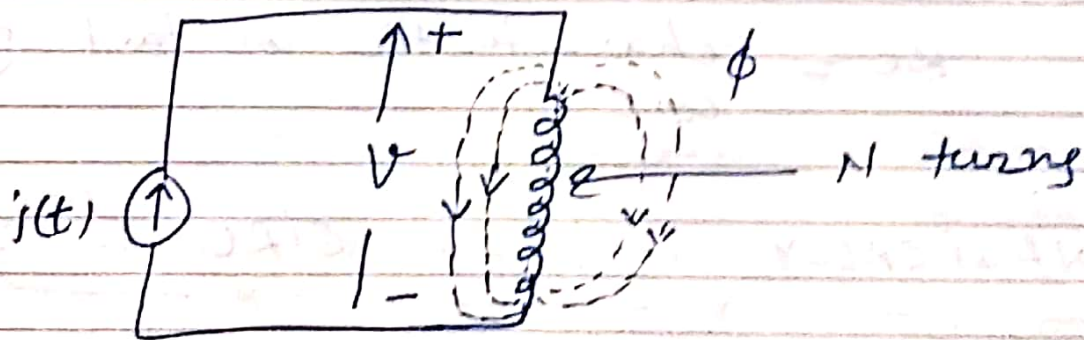 +
φ
V
N turns
j(t)
-